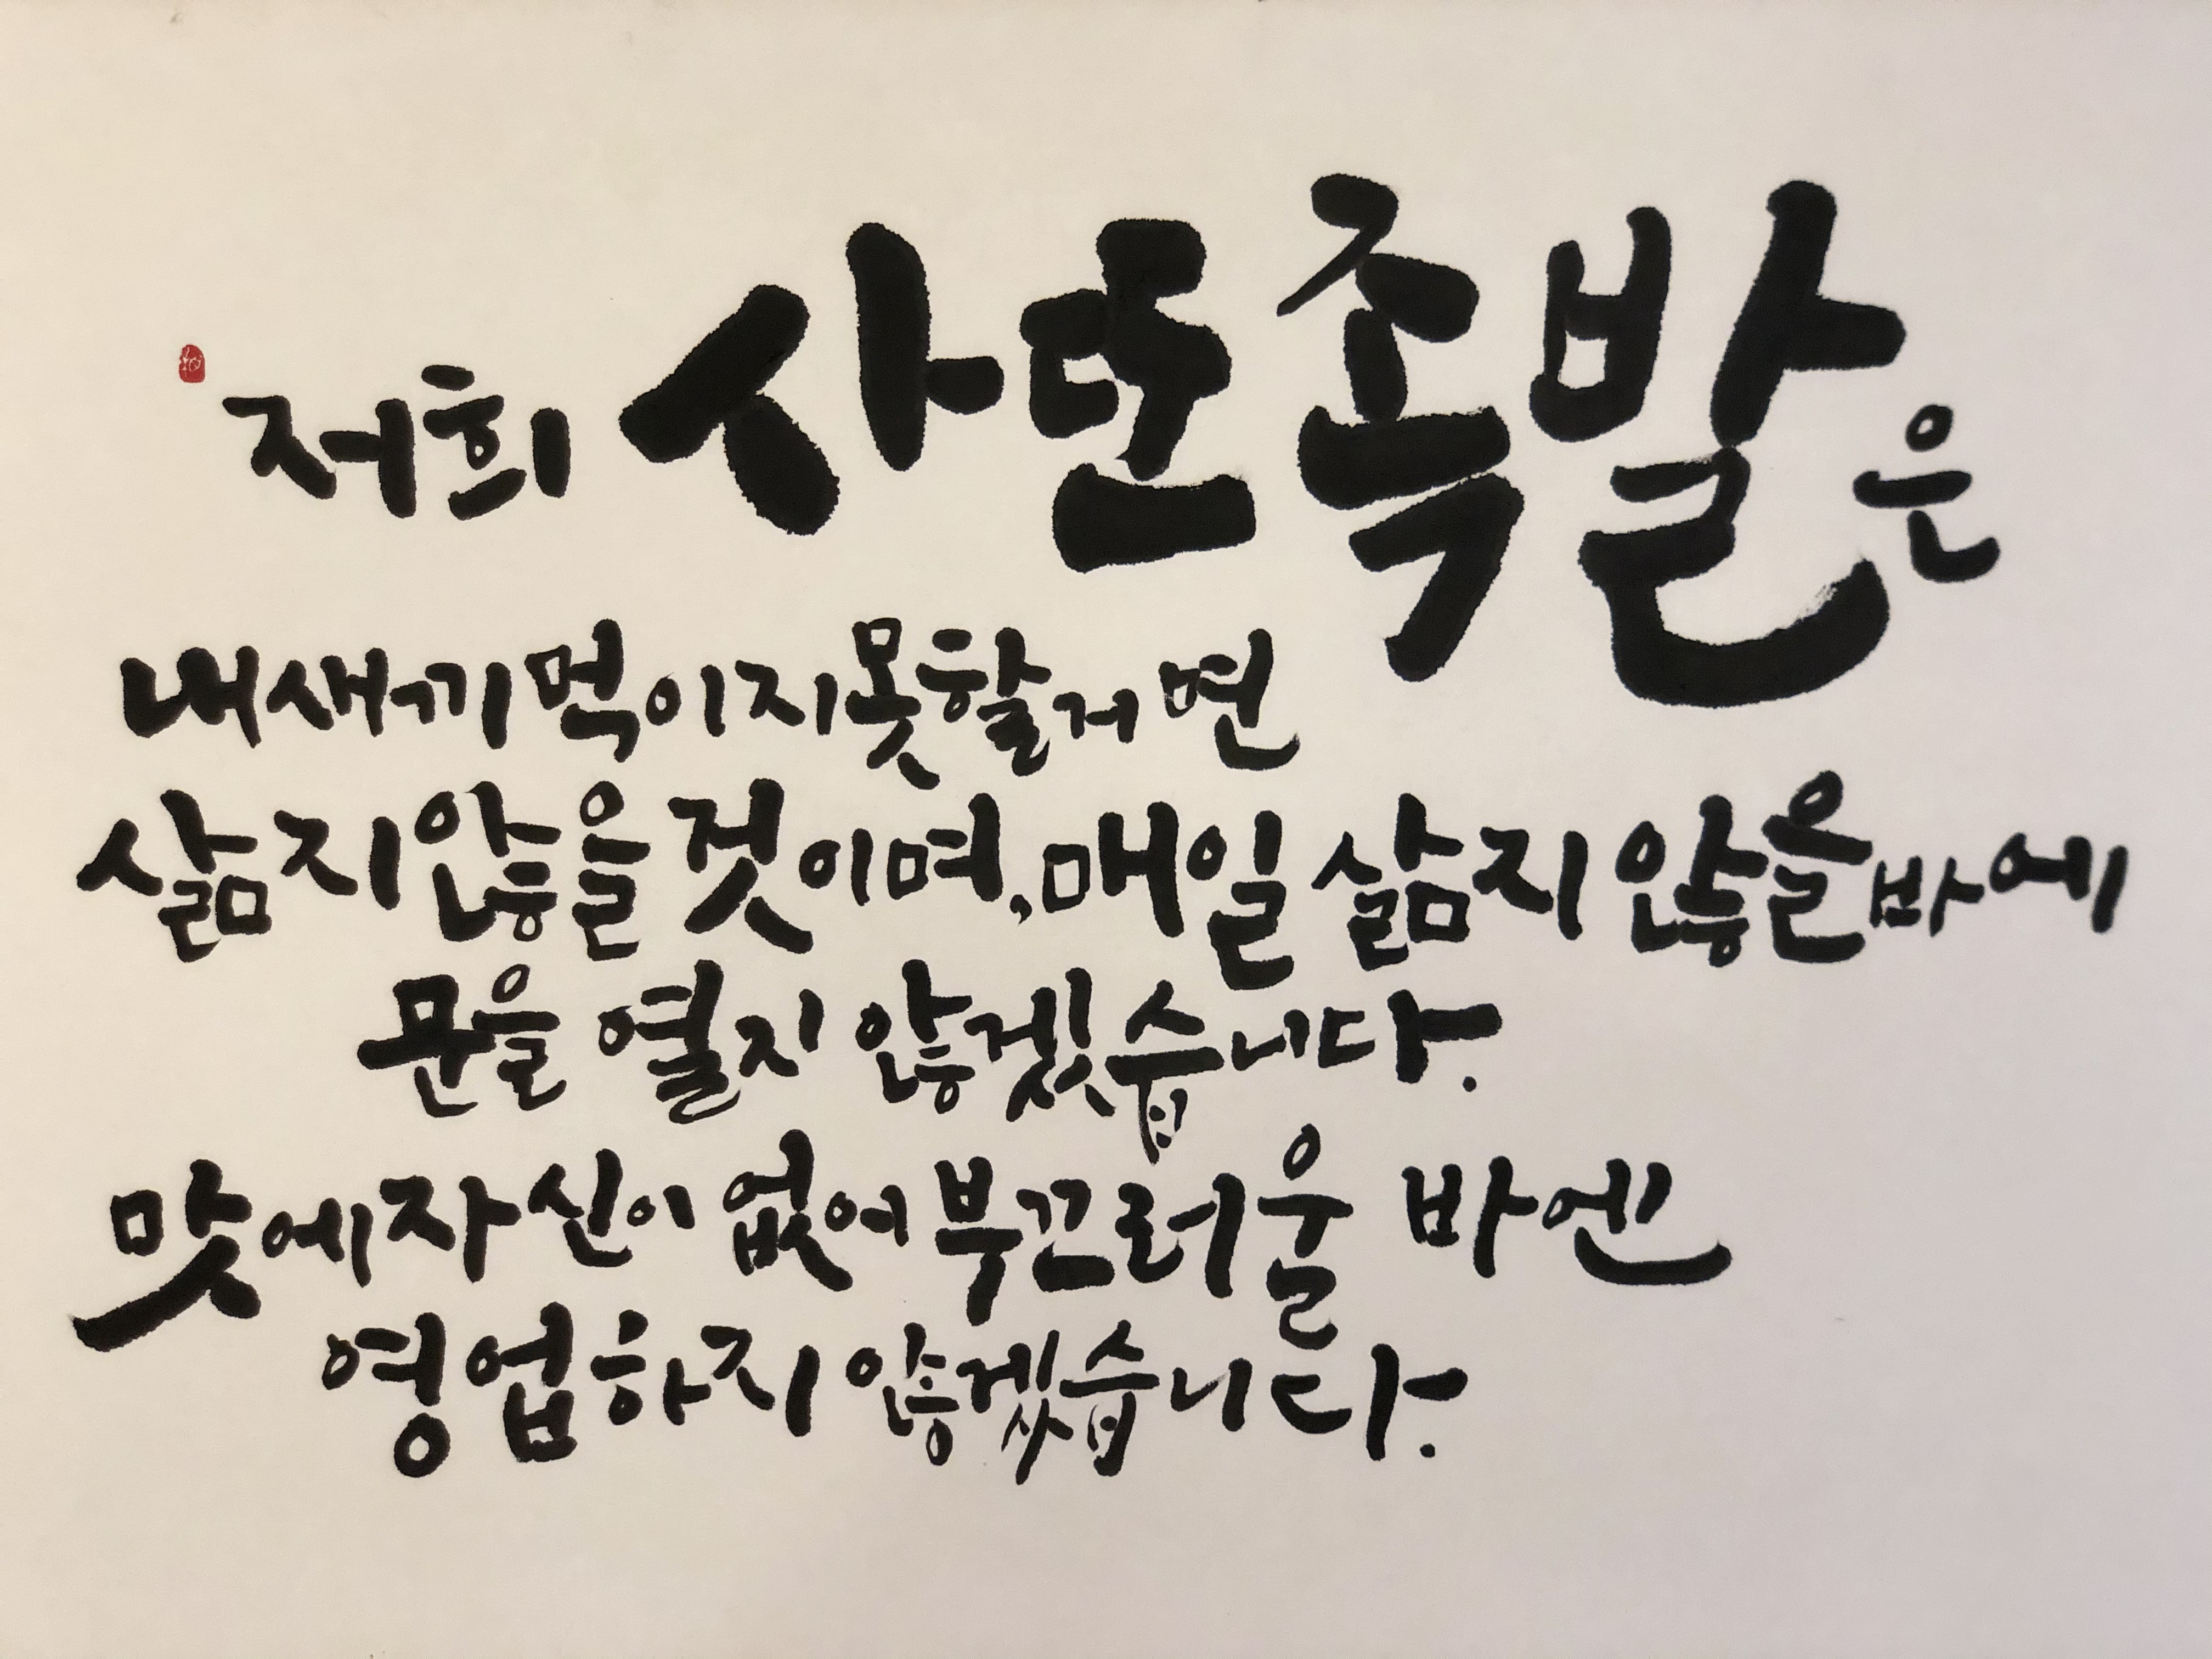 저희
내새끼 먹이지 못할거면
삶지 않을 것이며, 매일 삶지 않을 바에
문을 열지 않겠습니다.
맛에 자신이 없어 부끄러울 바엔
영업하지 않겠습니다.